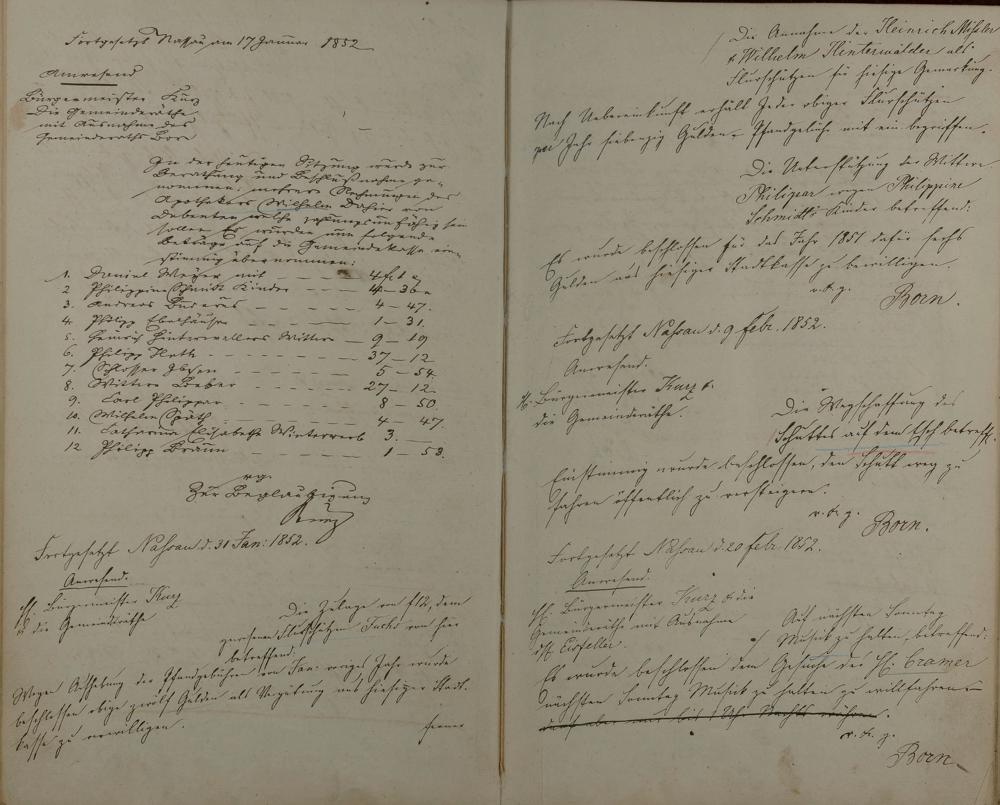 Fortgesetzt Nassau am 17 Januar 1852
Anwesend
Bürgermeister Kurz
Die Gemeinderäthe
mit Ausnahme des
Gemeinderaths Born
In der heutigen Sitzung wurde zur
Berathung und Beschlußnahme ge-
nommen: mehrere Rechnungen des
Apothekers Wilhelm Dahier von
Debenten welche zahlungsunfähig sein
sollen Es wurden nun folgende
Beträge auf die Gemeindekasse ein-
stimmig übernommen:
1. Daniel Meyer mit — — — 4 fl
2 Philippine Schmidt Kinder — — — 4 — 36
3. Andreas Buderus — — — — — 4 — 47.
4. Philipp Ebelhäuser — — — — 1 — 31.
5. Heinrich Hinterwällers Wittwe — 9 — 19
6. Philipp Roth — — — — — 37 — 12
7. Schlosser — — — — — 5 — 54
8. Wittwe Beeber — — — — 27 — 12
9. Carl Philippar — — — — 8 — 50.
10. Wilhelm Späth — — — — 4 — 47.
11. Catharina Elisabethe Winterwerb 3. —
12 Philipp Braun — — — — 1 — 53.
vg.
Zur Beglaubigung
Kurz
Fortgesetzt Nassau d. 31 Jan: 1852.
Anwesend.
H. Bürgermeister Kurz
u die Gemeinderäthe
Die Zulage von f12, dem
gewesenen Flurschützen Fuchs von hier
betreffend.
Wegen Aufhebung der Pfandgebühren von Jan: voriges Jahr wurde
beschlossen obige zwölf Gulden als Vergütung aus hiesiger Stadt-
kasse zu verwilligen.
ferner
Die Annahme der Heinrich Mißler
& Wilhelm Hinterwälder als
Flurschützen für hiesige Gemarkung.
Nach Uebereinkunft erhält Jeder obiger Flurschützen
pr Jahr siebenzig Gulden — Pfandgelder mit ein begriffen.
Die Unterstützung der Wittwe
Philipar wegen Philippine
Schmidt's Kinder betreffend:
Es wurde beschlossen für das Jahr 1851 dafür sechs
Gulden aus hiesiger Stadtkasse zu bewilligen.
v. b. g.
Born.
Fortgesetzt Nassau d. 9 Febr. 1852.
Anwesend.
H. Bürgermeister Kurz &
die Gemeinderäthe.
Die Wegschaffung des
Schuttes auf dem betreff.
Einstimmig wurde beschlossen, den Schutt weg zu
fahren öffentlich zu versteigern.
v. b. g.
Born.
Fortgesetzt Nassau d. 20 Febr. 1852.
Anwesend.
H. Bürgermeister Kurz & die
Gemeinderäthe mit Ausnahme
d. H. Eidfeller.
Auf nächsten Sonntag
Musik zu halten, betreffend:
Es wurde beschlossen dem Gesuche des H. Cramer
nächsten Sonntag Musik zu halten zu willfahren
darf aber nur bis 1 Uhr Nachts währen.
v. b. g.
Born